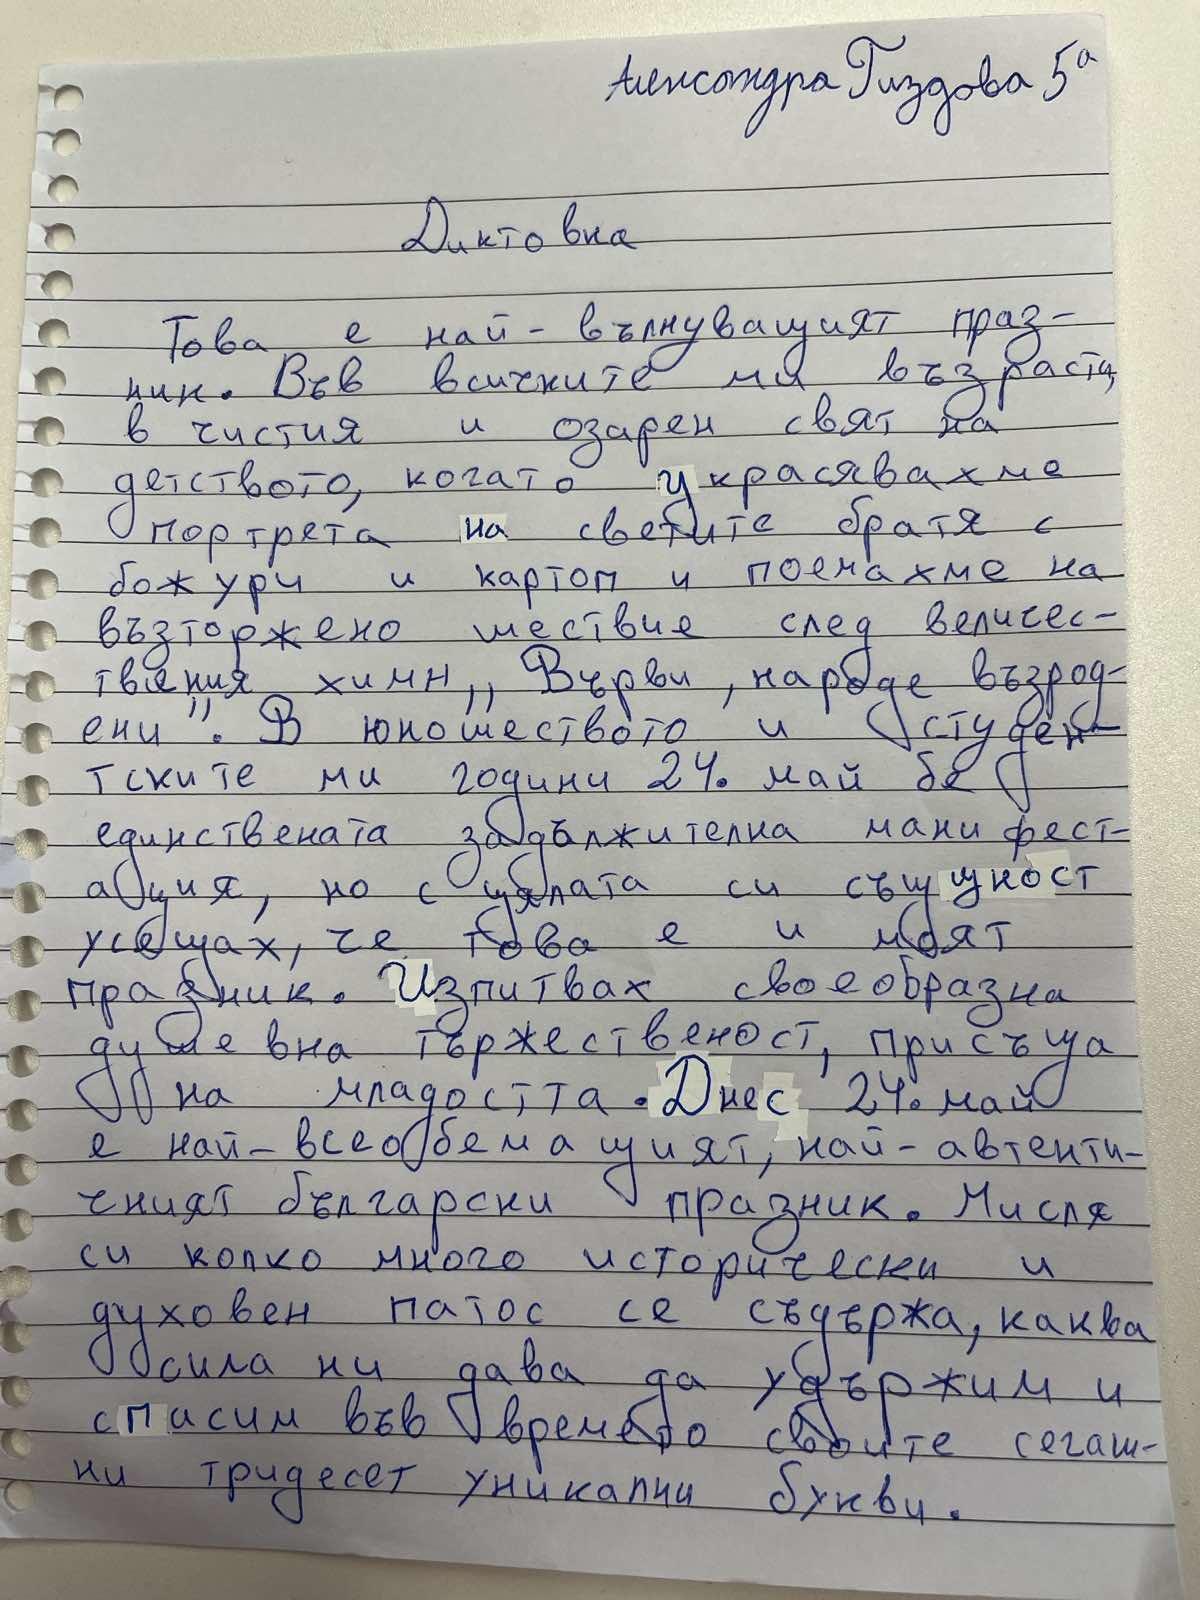 Александра Гиздова 5а
Диктовка
Това е най-вълнуващият праз-
ник. Във всичките ми възрасти,
в чистия и озарен свят на
детството, когато украсявахме
портрета на светите братя с
божури и картоп и поемахме на
възторжено шествие след величес-
твения химн „Върви, народе възрод-
ени". В юношеството и студен-
тските ми години 24. май бе
единствената задължителна манифест-
ация, но с цялата си същщност
усещах, че това е и моят
празник. Изпитвах своеобразна
душевна тържественост, присъща
на младостта. Днес 24. май
е най-всеобемащият, най-автенти-
чният български празник. Мисля
си колко много исторически и
духовен патос се съдържа, каква
сила ни дава да удържим и
спасим във времето своите сегаш-
ни тридесет уникални букви.